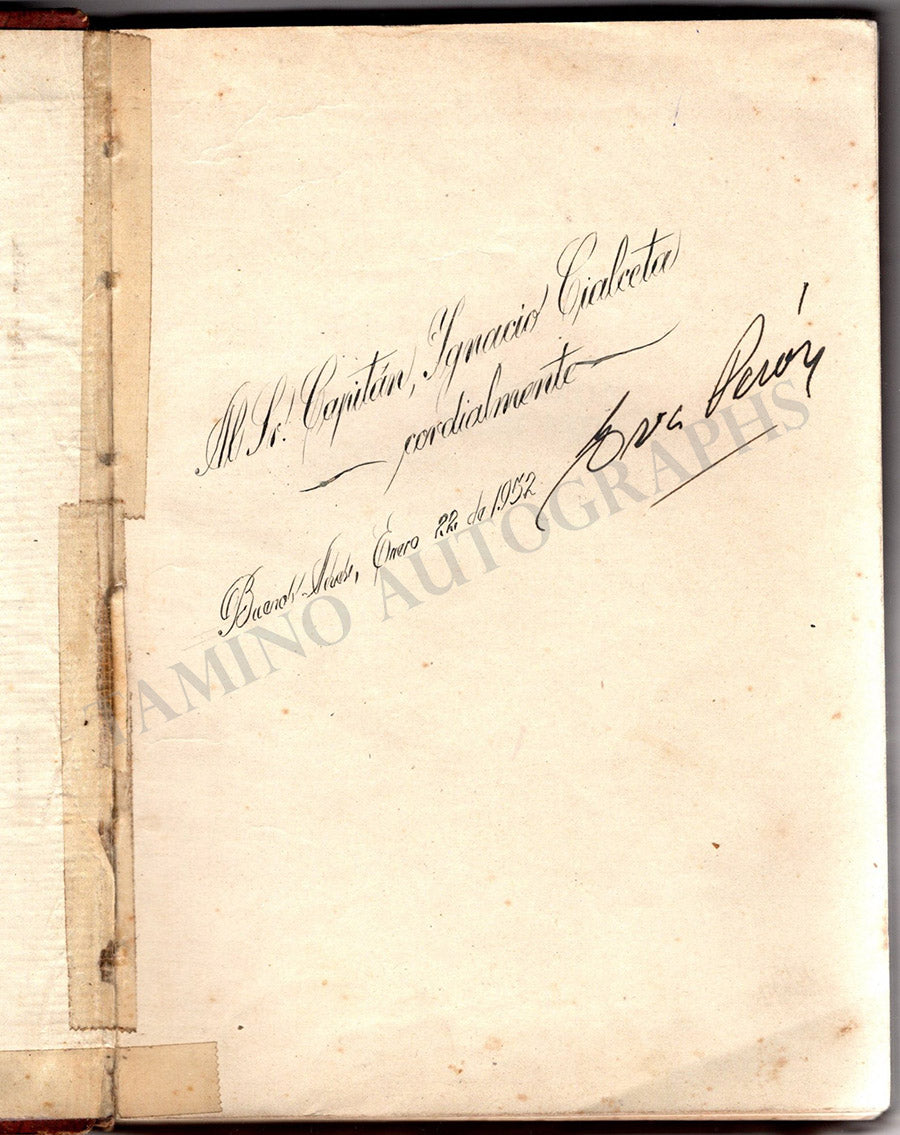 Al Sr. Capitán, Ignacio Cialceta
cordialmente
Eva Perón
Buenos Aires, Enero 22 de 1952
TAMINO AUTOGRAPHS